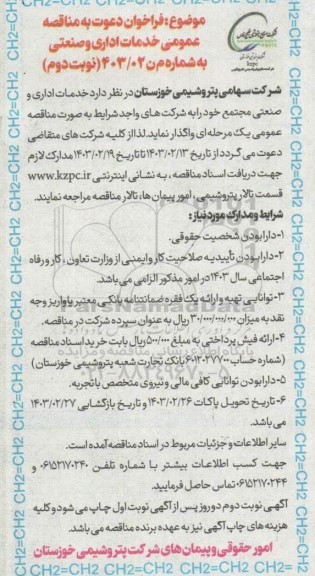 موضوع: فراخوان دعوت به مناقصه
عمومی خدمات اداری و صنعتی
به شماره من ۴۰۳/۰۲ (نوبت دوم)
kzpc
شرکت سهامی پتروشیمی خوزستان در نظر دارد خدمات اداری و
صنعتی مجتمع خود را به شرکت های واجد شرایط به صورت مناقصه
عمومی یک مرحله ای واگذار نماید. لذا از کلیه شرکت های متقاضی
دعوت می گردد از تاریخ ۱۴۰۳/۰۲/۱۳ تا تاریخ ۱۴۰۳/۰۲/۱۹ مدارک لازم
جهت دریافت اسناد مناقصه، به نشانی اینترنتی www.kzpc.ir
قسمت تالار پتروشیمی، امور پیمان ها، تالار مناقصه مراجعه نمایند.
شرایط و مدارک مورد نیاز:
۱- دارا بودن شخصیت حقوقی.
۲- دارا بودن تأییدیه صلاحیت کار و ایمنی از وزارت تعاون، کار و رفاه
اجتماعی سال ۱۴۰۳ در امور مذکور الزامی می باشد.
۳- توانایی تهیه و ارائه یک فقره ضمانتنامه بانکی معتبر یا واریز وجه
نقد به میزان ۲۰/۰۰۰/۰۰۰/۰۰۰ ریال به عنوان سپرده شرکت در مناقصه.
۴- ارائه فیش پرداختی به مبلغ ۵۰۰/۰۰۰ ریال بابت خرید اسناد مناقصه
(شماره حساب ۶۱۲۰۲۷۷۰۰ بانک تجارت شعبه پتروشیمی خوزستان)
۵- دارا بودن توانایی کافی مالی و نیروی متخصص با تجربه.
۶- تاریخ تحویل پاکات ۱۴۰۳/۰۲/۲۶ و تاریخ بازگشایی ۱۴۰۳/۰۲/۲۷
می باشد.
سایر اطلاعات و جزئیات مربوط در اسناد مناقصه آمده است.
جهت کسب اطلاعات بیشتر با شماره تلفن ۰۶۱۵۲۱۷۰۲۴۰ و
۰۶۱۵۲۱۷۰۲۴۴ تماس حاصل فرمایید.
آگهی نوبت دوم دو روز پس از آگهی نوبت اول چاپ می شود و کلیه
هزینه های چاپ آگهی نیز به عهده برنده مناقصه می باشد.
امور حقوقی و پیمان های شرکت پتروشیمی خوزستان
CH2=CH2 CH2=CH2 CH2=CH2 CH2=CH2